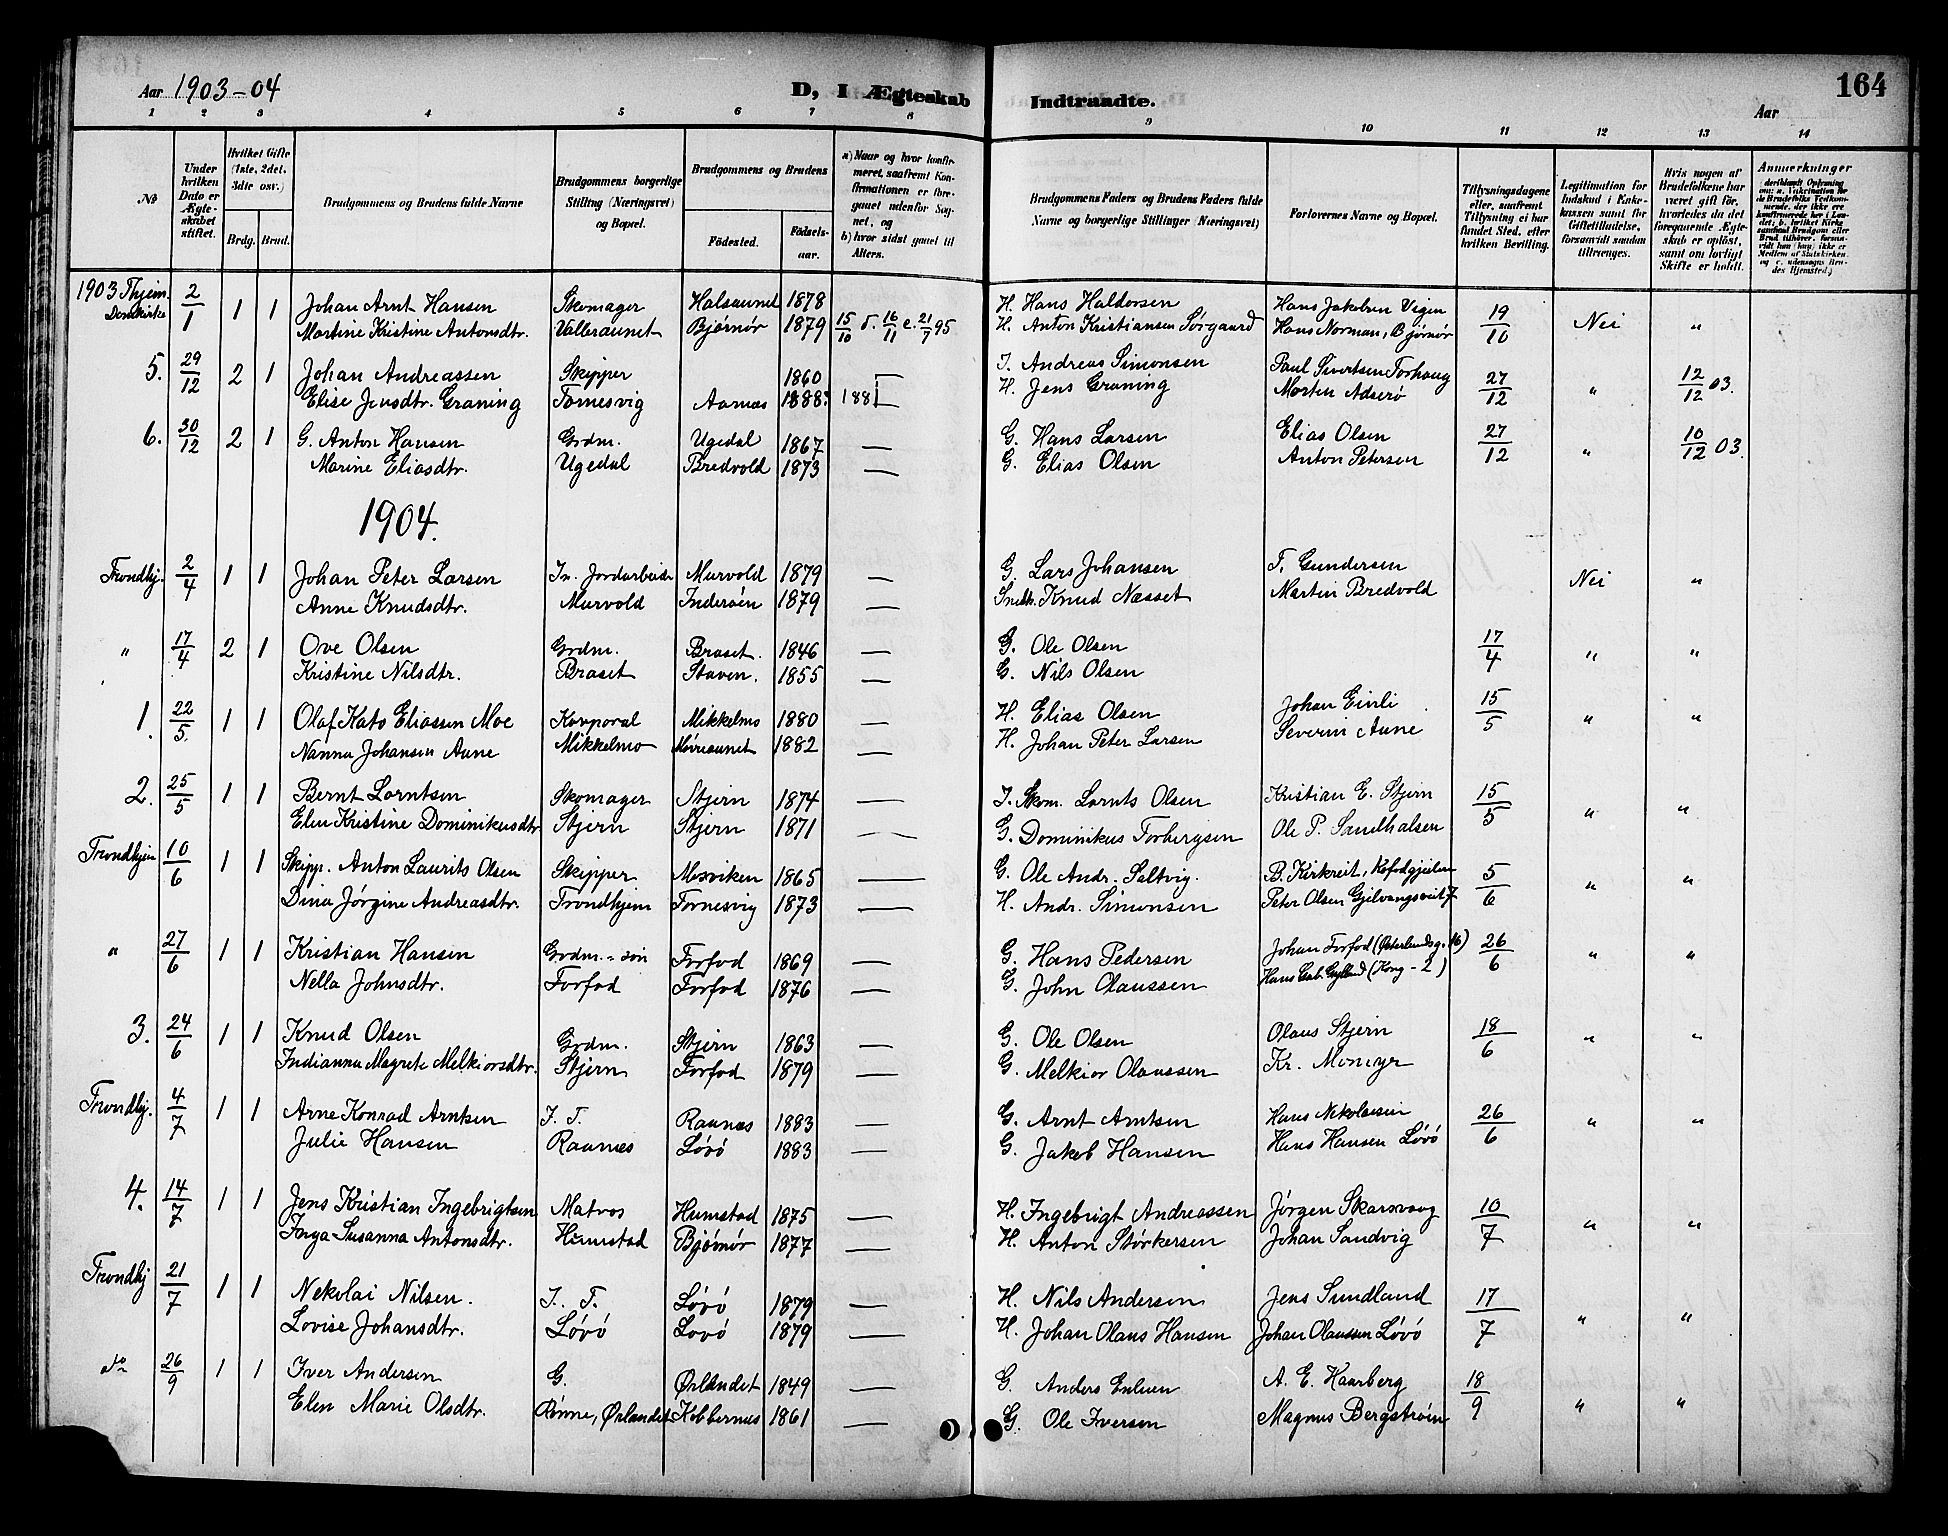 Aar 1903-04 D, I Ægteskab Indtraadte. Aar 164
1 2 3 4 5 6 7 8 9 10 11 12 13 14
No
Under hvilken Dato er Ægteskabet stiftet.
Hvilket Gifte (1ste, 2det, 3die osv.)
Brdg. Brud.
Brudgommens og Brudens fulde Navne
Brudgommens borgerlige Stilling (Næringsvei) og Bopæl.
Brudgommens og Brudens
Fødested. Fødselsaar.
a) Naar og hvor konfirmeret, saafremt Konfirmationen er foregaaet udenfor Sognet, og
b) hvor sidst gaaet til Alters.
Brudgommens Faders og Brudens Faders fulde Navne og borgerlige Stillinger (Næringsvei)
Forlovernes Navne og Bopæl.
Tillysningsdagene eller, saafremt Tillysning ei har fundet Sted, efter hvilken Bevilling.
Legitimation for Indskud i Enkekassen samt for Giftetilladelse, forsaavidt saadan tiltrænges.
Hvis nogen af Brudefolkene har været gift før, hvorledes da det foregaaende Ægteskab er opløst, samt om lovligt Skifte er holdt.
Anmærkninger
1903 Thjem. 2/1 1 1 Johan Arnt Hansen Skomager Halsaunet 1878 H. Hans Haldorsen Hans Jakobsen Vigen 19/10 Nei "
Domkirke Martine Kristine Antonsdtr. Valleraunet Bjørnør 1879 15/10 16/11 21/7 95 H. Anton Kristiansen Sørgaard Hans Norman, Bjørnør
5. 29/12 2 1 Johan Andreassen Skipper 1860 I. Andreas Simonsen Paul Sivertsen Forhaug 27/12 " 12/12 03.
Elise Jensdtr. Graning Fornesvig Aarnes 1888. 188 H. Jens Graning Morten Adserø
6. 30/12 2 1 G. Anton Hansen Grdm. Ugedal 1867 — G. Hans Larsen Elias Olsen 27/12 " 10/12 03.
Marine Eliasdtr. Ugedal Bredvold 1873 — G. Elias Olsen Anton Petersen
1904.
Trondhj. 2/4 1 1 Johan Peter Larsen In. Jordarbeider Murvold 1879 — G. Lars Johansen T. Gundersen Nei "
Anne Knudsdtr. Murvold Inderøen 1879 — Knud Næsset Martin Bredvold
" 17/4 2 1 Ove Olsen Grdm. Braset. 1846 — G. Ole Olsen 17/4 " "
Kristine Nilsdtr. Braset Staven. 1855 — G. Nils Olsen
1. 22/5 1 1 Olaf Kato Eliassen Moe Korporal Mikkelmo 1880 — H. Elias Olsen Johan Einli 15/5 " "
Nanna Johansen Aune Mikkelmo Moireaunet 1882 — H. Johan Peter Larsen Severin Aune
2. 25/5 1 1 Bernt Lorntsen Skomager Stjern 1874 — I. Skom. Lornts Olsen Kristian E. Stjern 15/5 " "
Elen Kristine Dominikusdtr Stjern Stjern 1871 — G. Dominikus Torbergsen Ole P. Sandhalsen
Trondhjem 10/6 1 1 Skipp. Anton Laurits Olsen Skipper Mesviken 1865 — G. Ole Andr. Saltvig. B. Kirkreit, 5/6 " "
Dina Jørgine Andreasdtr. Trondhjem Fornesvig 1873 — H. Andr. Simonsen Peter Olsen Gjelvangsveit 7
" 27/6 1 1 Kristian Hansen Grdm.-søn Forfod 1869 — G. Hans Pedersen Johan Forfod 26/6 " "
Nella Johnsdtr. Forfod Forfod 1876 — G. John Olaussen Hans
3. 24/6 1 1 Knud Olsen Grdm. Stjern 1863 — G. Ole Olsen Olaus Stjern 18/6 " "
Indianna Magrete Melkiorsdtr. Stjern Forfod 1879 — G. Melkior Olaussen Kr. Monsyr
Trondhj. 4/7 1 1 Arne Konrad Arntsen I. T. Raanes 1883 — G. Arnt Arntsen Hans Nekolaisen 26/6 " "
Julie Hansen Raanes Løvø 1883 — G. Jakob Hansen Hans Hansen Løvø
4. 14/7 1 1 Jens Kristian Ingebrigtsen Matros Humstad 1875 — H. Ingebrigt Andreassen Jørgen Skarsvaag 10/7 " "
Inga Susanna Antonsdtr. Humstad Bjørnør 1877 — H. Anton Størkersen Johan Sandvig
Trondhj 21/7 1 1 Nekolai Nilsen. I. T. Løvø 1879 — H. Nils Andersen Jens Sundland 17/7 " "
Lovise Johansdtr. Løvø Løvø 1879 — H. Johan Olaus Hansen Johan Olaussen Løvø
do 26/9 1 1 Iver Andersen G. Ørlandet 1849 — G. Anders A. E. Kaarberg 18/9 " "
Elen Marie Olsdtr. Rønne, Ørlandet Kobbernes 1861 — G. Ole Iversen Magnus Bergstrøm